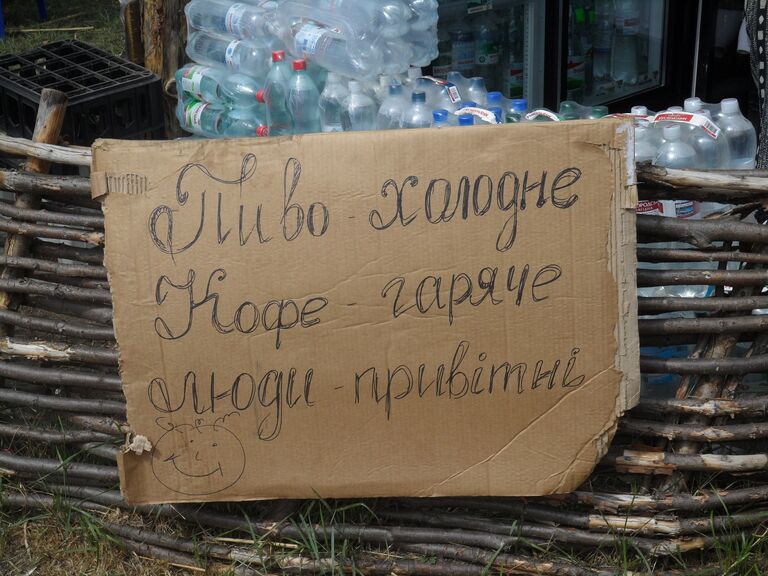 Пиво - холодне
Кофе - гаряче
люди - привітні